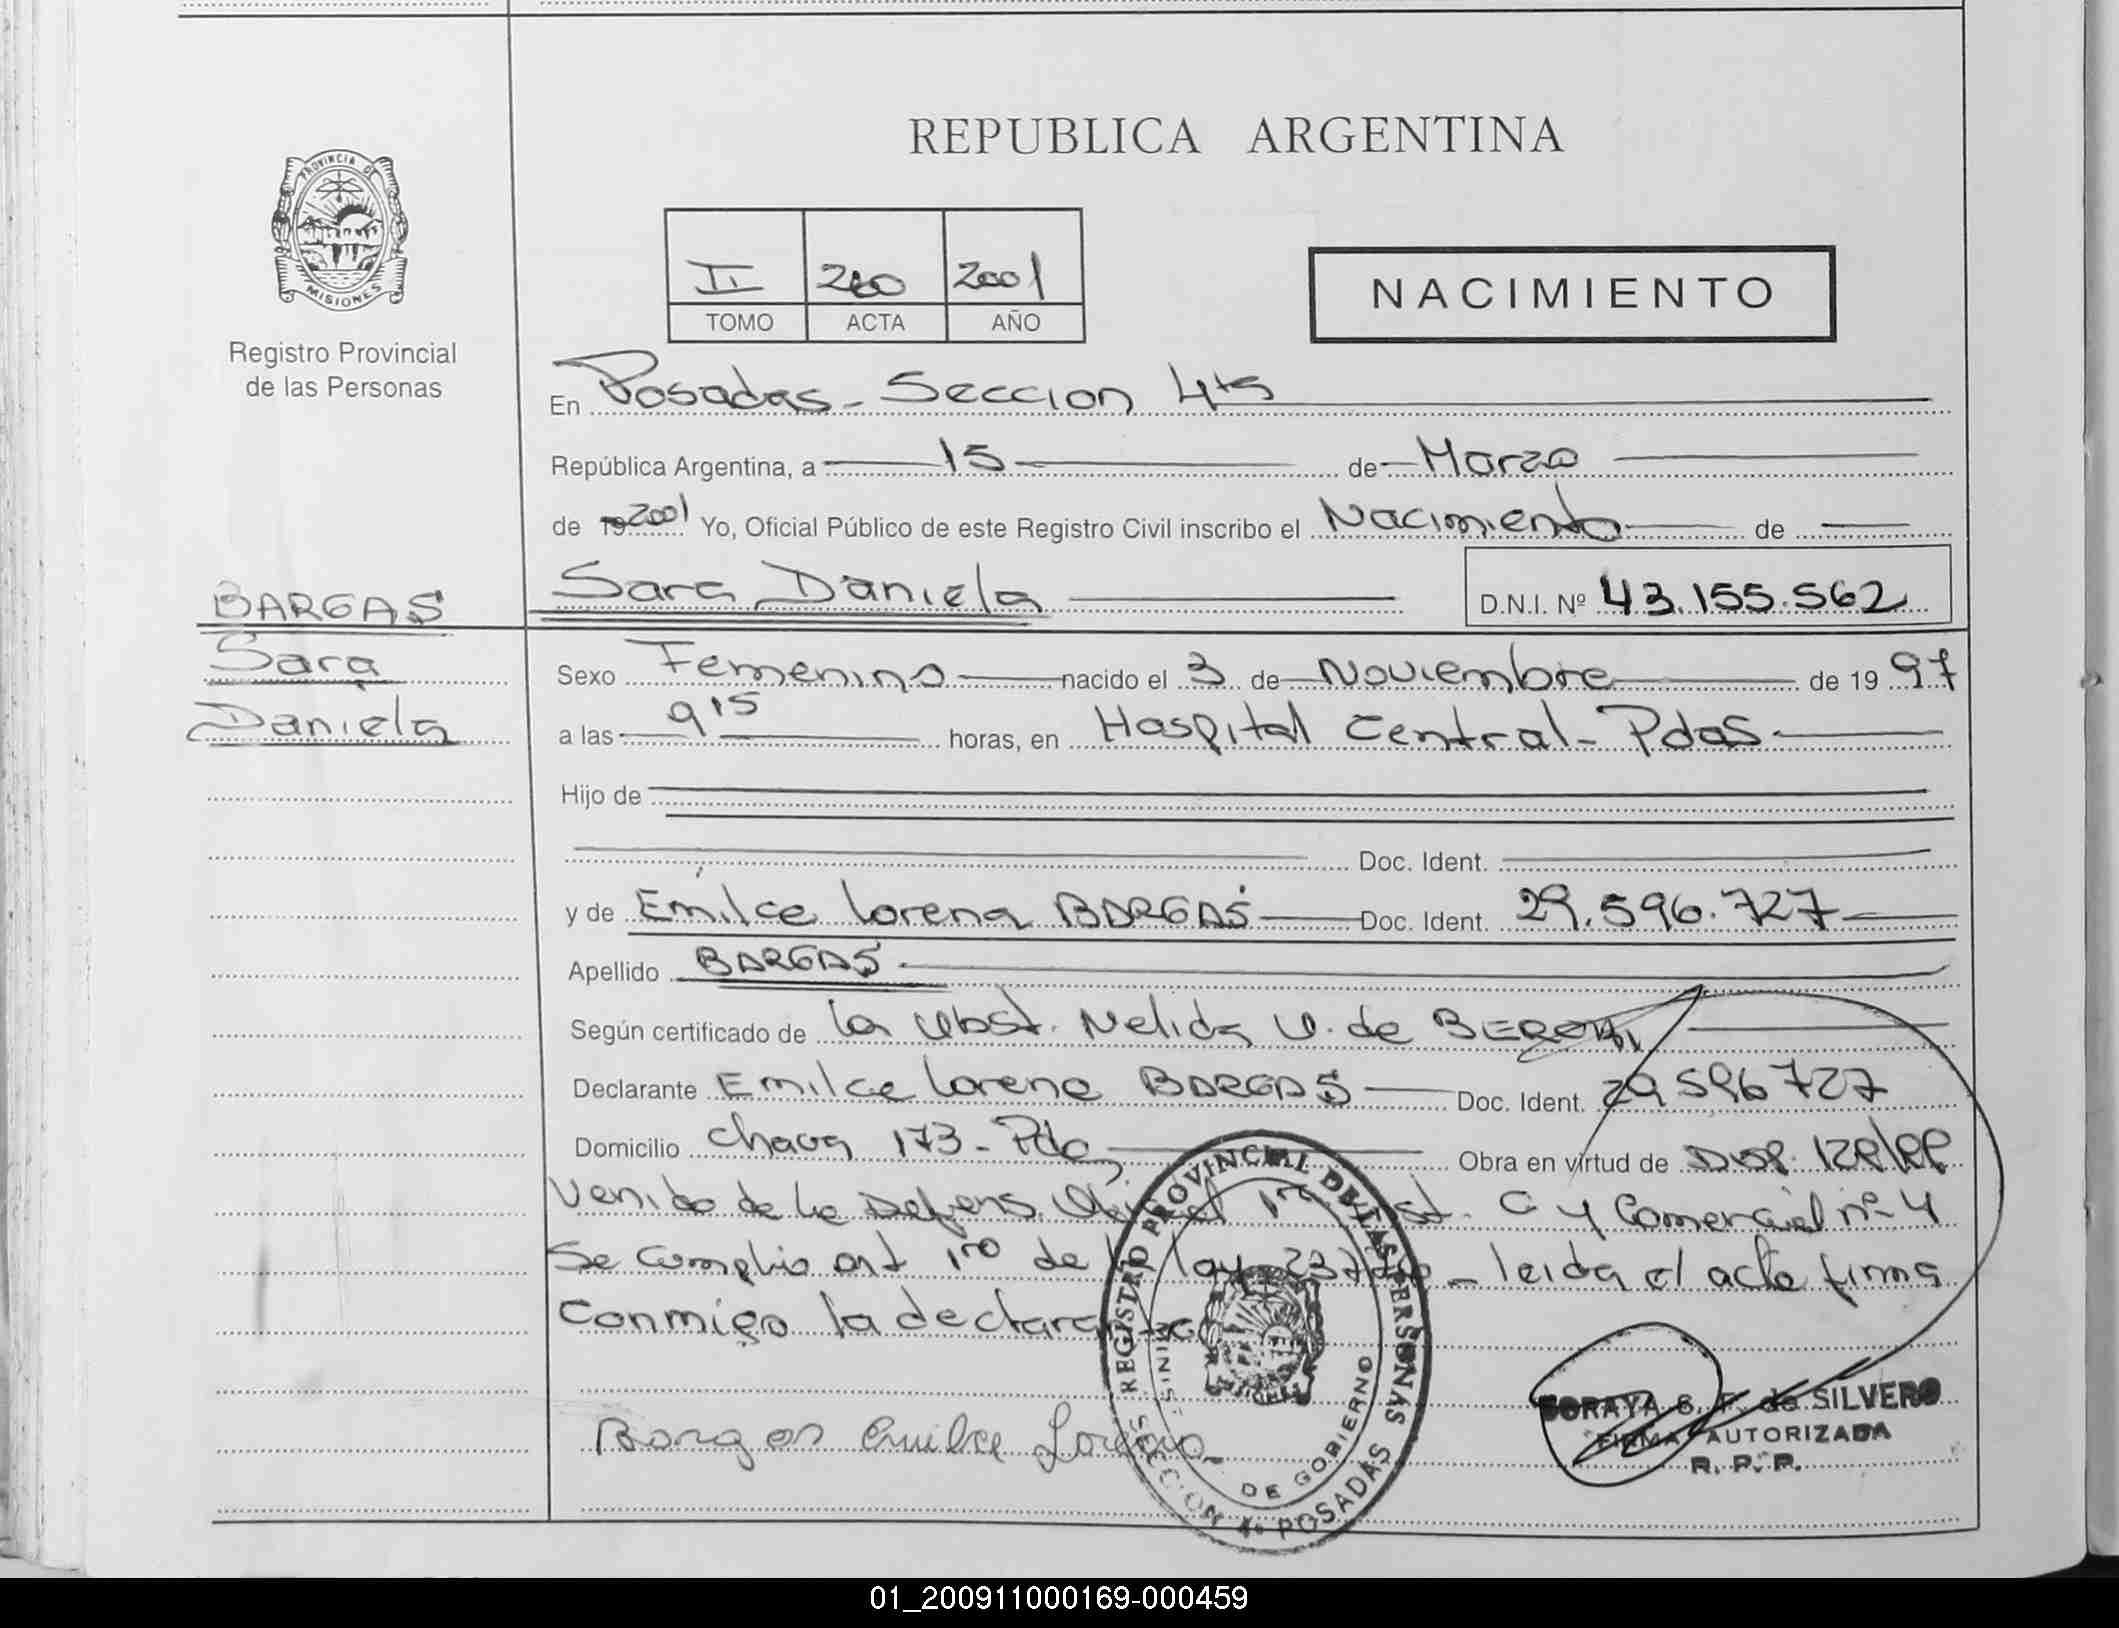 REPUBLICA ARGENTINA
PROVINCIA DE
MISIONES
Registro Provincial
de las Personas
II 2001
TOMO ACTA AÑO
NACIMIENTO
En Posadas - Seccion 4ta
República Argentina, a 15 de Marzo
de 19 2001 Yo, Oficial Público de este Registro Civil inscribo el Nacimiento de
BARGAS
Sara Daniela D.N.I. Nº 43.155.562
Sara
Daniela
Sexo Femenino nacido el 3 de Noviembre de 19 97
a las 9 15 horas, en Hospital Central - Pdas
Hijo de
Doc. Ident.
y de Emilce Lorena BARGAS Doc. Ident. 29.596.727
Apellido BARGAS
Según certificado de la Obst. Nelida V. de
Declarante Emilce Lorena BARGAS Doc. Ident. 29.596727
Domicilio 173 - Obra en virtud de
venido de la Defens. C y Comercial nº 4
Se cumplio art 1ro de la ley - leida el acta firma
Conmigo la declarante
REGISTRO PROVINCIAL DE LAS PERSONAS
DE GOBIERNO
SECCION 4a POSADAS
Bargas Emilce Lorena
SORAYA S. F. de SILVERO
FIRMA AUTORIZADA
R. P. P.
01_200911000169-000459